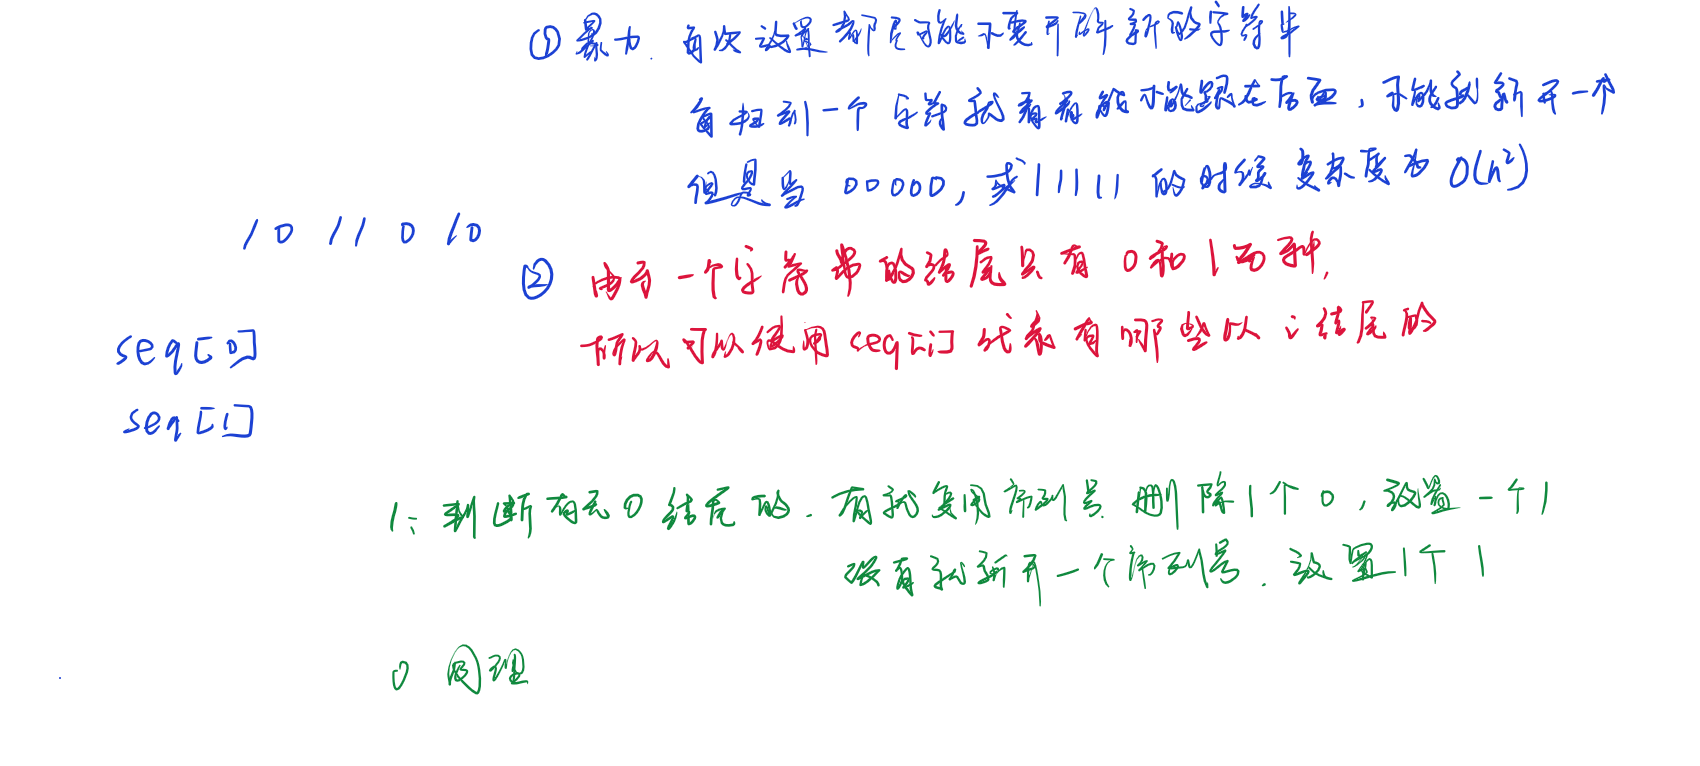 ① 暴力. 每次设置都尽可能不要开辟新的字符串
每扫到一个字符就看看能不能跟在后面，不能就新开一个
但是当 00000，或 11111 的时候复杂度为 O(n²)
10 11 0 10
② 由于一个字符串的结尾只有 0 和 1 两种,
所以可以使用 seq[i] 代表有哪些以 i 结尾的
seq[0]
seq[1]
1: 判断有无 0 结尾的. 有就复用序列号 删除1个 0，设置一个1
没有就新开一个序列号. 设置1个 1
0 同理